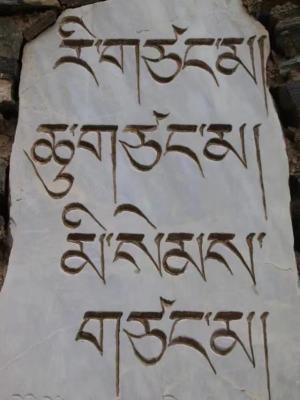 རི་གཙང་མ།
ཆུ་གཙང་མ།
མི་སེམས་
གཙང་མ།